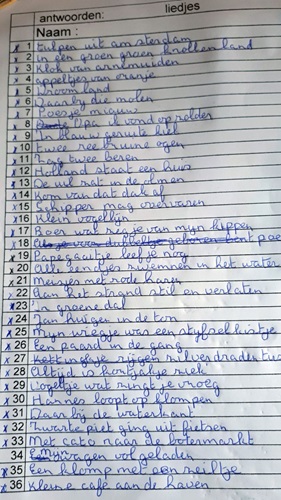 antwoorden: liedjes
Naam :
x 1 tulpen uit amsterdam
x 2 In een groen groen knollen land
x 3 Klok van arnemuiden
x 4 appeltjes van oranje
x 5 Droom land
x 6 Daar bij die molen
x 7 Poesje miauw
x 8 Opa ik vond op zolder
x 9 In blauw geruite kiel
x 10 twee reebruine ogen
x 11 zag twee beren
x 12 Holland staat een huis
x 13 De uil zat in de olmen
x 14 Kom van dat dak af
x 15 Schipper mag overvaren
x 16 Klein vogelijn
x 17 Boer wat zeg je van mijn kippen
x 18 Als je voor dubbeltje geboren bent
x 19 Papegaaitje leef je nog
x 20 Alle eendjes zwemmen in het water
x 21 Meisjes met rode haren
x 22 Aan het strand stil en verlaten
x 23 'n groene dal
x 24 Jan Pwigen in de ton
x 25 Mijn wiegje was een stijfselkistje
x 26 Een paard in de gang
x 27 rijgen zilverdraden
x 28 Altijd is kortjakje ziek
x 29 Vogeltje wat zingt je vroeg
x 30 Hannes loopt op klompen
x 31 Daar bij de waterkant
x 32 Zwarte piet ging uit fietsen
x 33 Met cato naar de botermarkt
34 wagen volgeladen
x 35 Een klomp met een zeiltje
x 36 Kleine café aan de haven